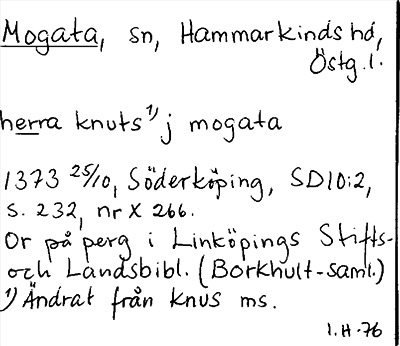 Mogata, sn, Hammarkinds hd,
Östg.l.
herra knuts¹⁾ j mogata
1373 25/10, Söderköping, SD10:2,
s. 232, nr X 266.
Or på perg i Linköpings Stifts-
och Landsbibl. (Borkhult-saml.)
¹⁾ Ändrat från knus ms.
I.H-76